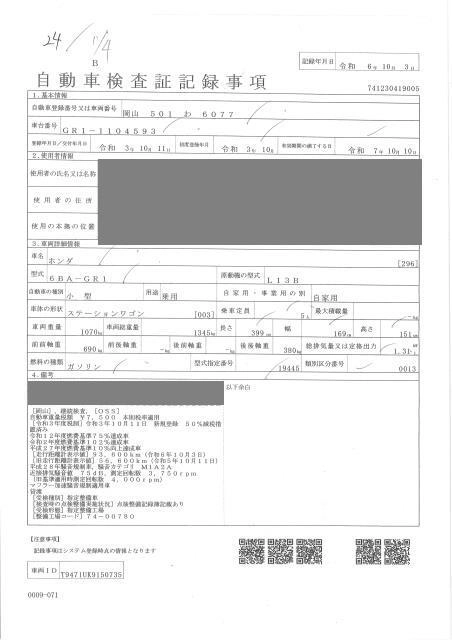 24 11/4
B
記録年月日 令和 6年10月 3日
自動車検査証記録事項
741230419005
1.基本情報
自動車登録番号又は車両番号 岡山 501 わ 6077
車台番号 GR1-1104593
登録年月日/交付年月日 令和 3年10月11日 初度登録年月 令和 3年10月 有効期間の満了する日 令和 7年10月10日
2.使用者情報
使用者の氏名又は名称
使用者の住所
使用の本拠の位置
3.車両詳細情報
車名 ホンダ [296]
型式 6BA-GR1 原動機の型式 L13B
自動車の種別 小型 用途 乗用 自家用・事業用の別 自家用
車体の形状 ステーションワゴン [003] 乗車定員 5人 最大積載量 -kg
車両重量 1070kg 車両総重量 1345kg 長さ 399cm 幅 169cm 高さ 151cm
前前軸重 690kg 前後軸重 -kg 後前軸重 -kg 後後軸重 380kg 総排気量又は定格出力 1.31
燃料の種類 ガソリン 型式指定番号 19445 類別区分番号 0013
4.備考
以下余白
[岡山],継続検査,[OSS]
自動車重量税額 ¥7,500 本則税率適用
[令和3年度税制]令和3年10月11日 新規登録 50%減税措
置済み
令和12年度燃費基準75%達成車
令和2年度燃費基準102%達成車
平成27年度燃費基準10%向上達成車
[走行距離計表示値]93,600km(令和6年10月3日)
[旧走行距離計表示値]56,600km(令和5年10月11日)
平成28年騒音規制車,騒音カテゴリ M1A2A
近接排気騒音値 75dB,測定回転数 3,750rpm
[旧基準適用時測定回転数 4,000rpm]
マフラー加速騒音規制適用車
[受検種別]指定整備車
[検査時の点検整備実施状況]点検整備記録簿記載あり
[受検形態]指定整備工場
[整備工場コード]74-00780
【注意事項】
記録事項はシステム登録時点の情報となります
車両ID T9471UK9150735
0009-071